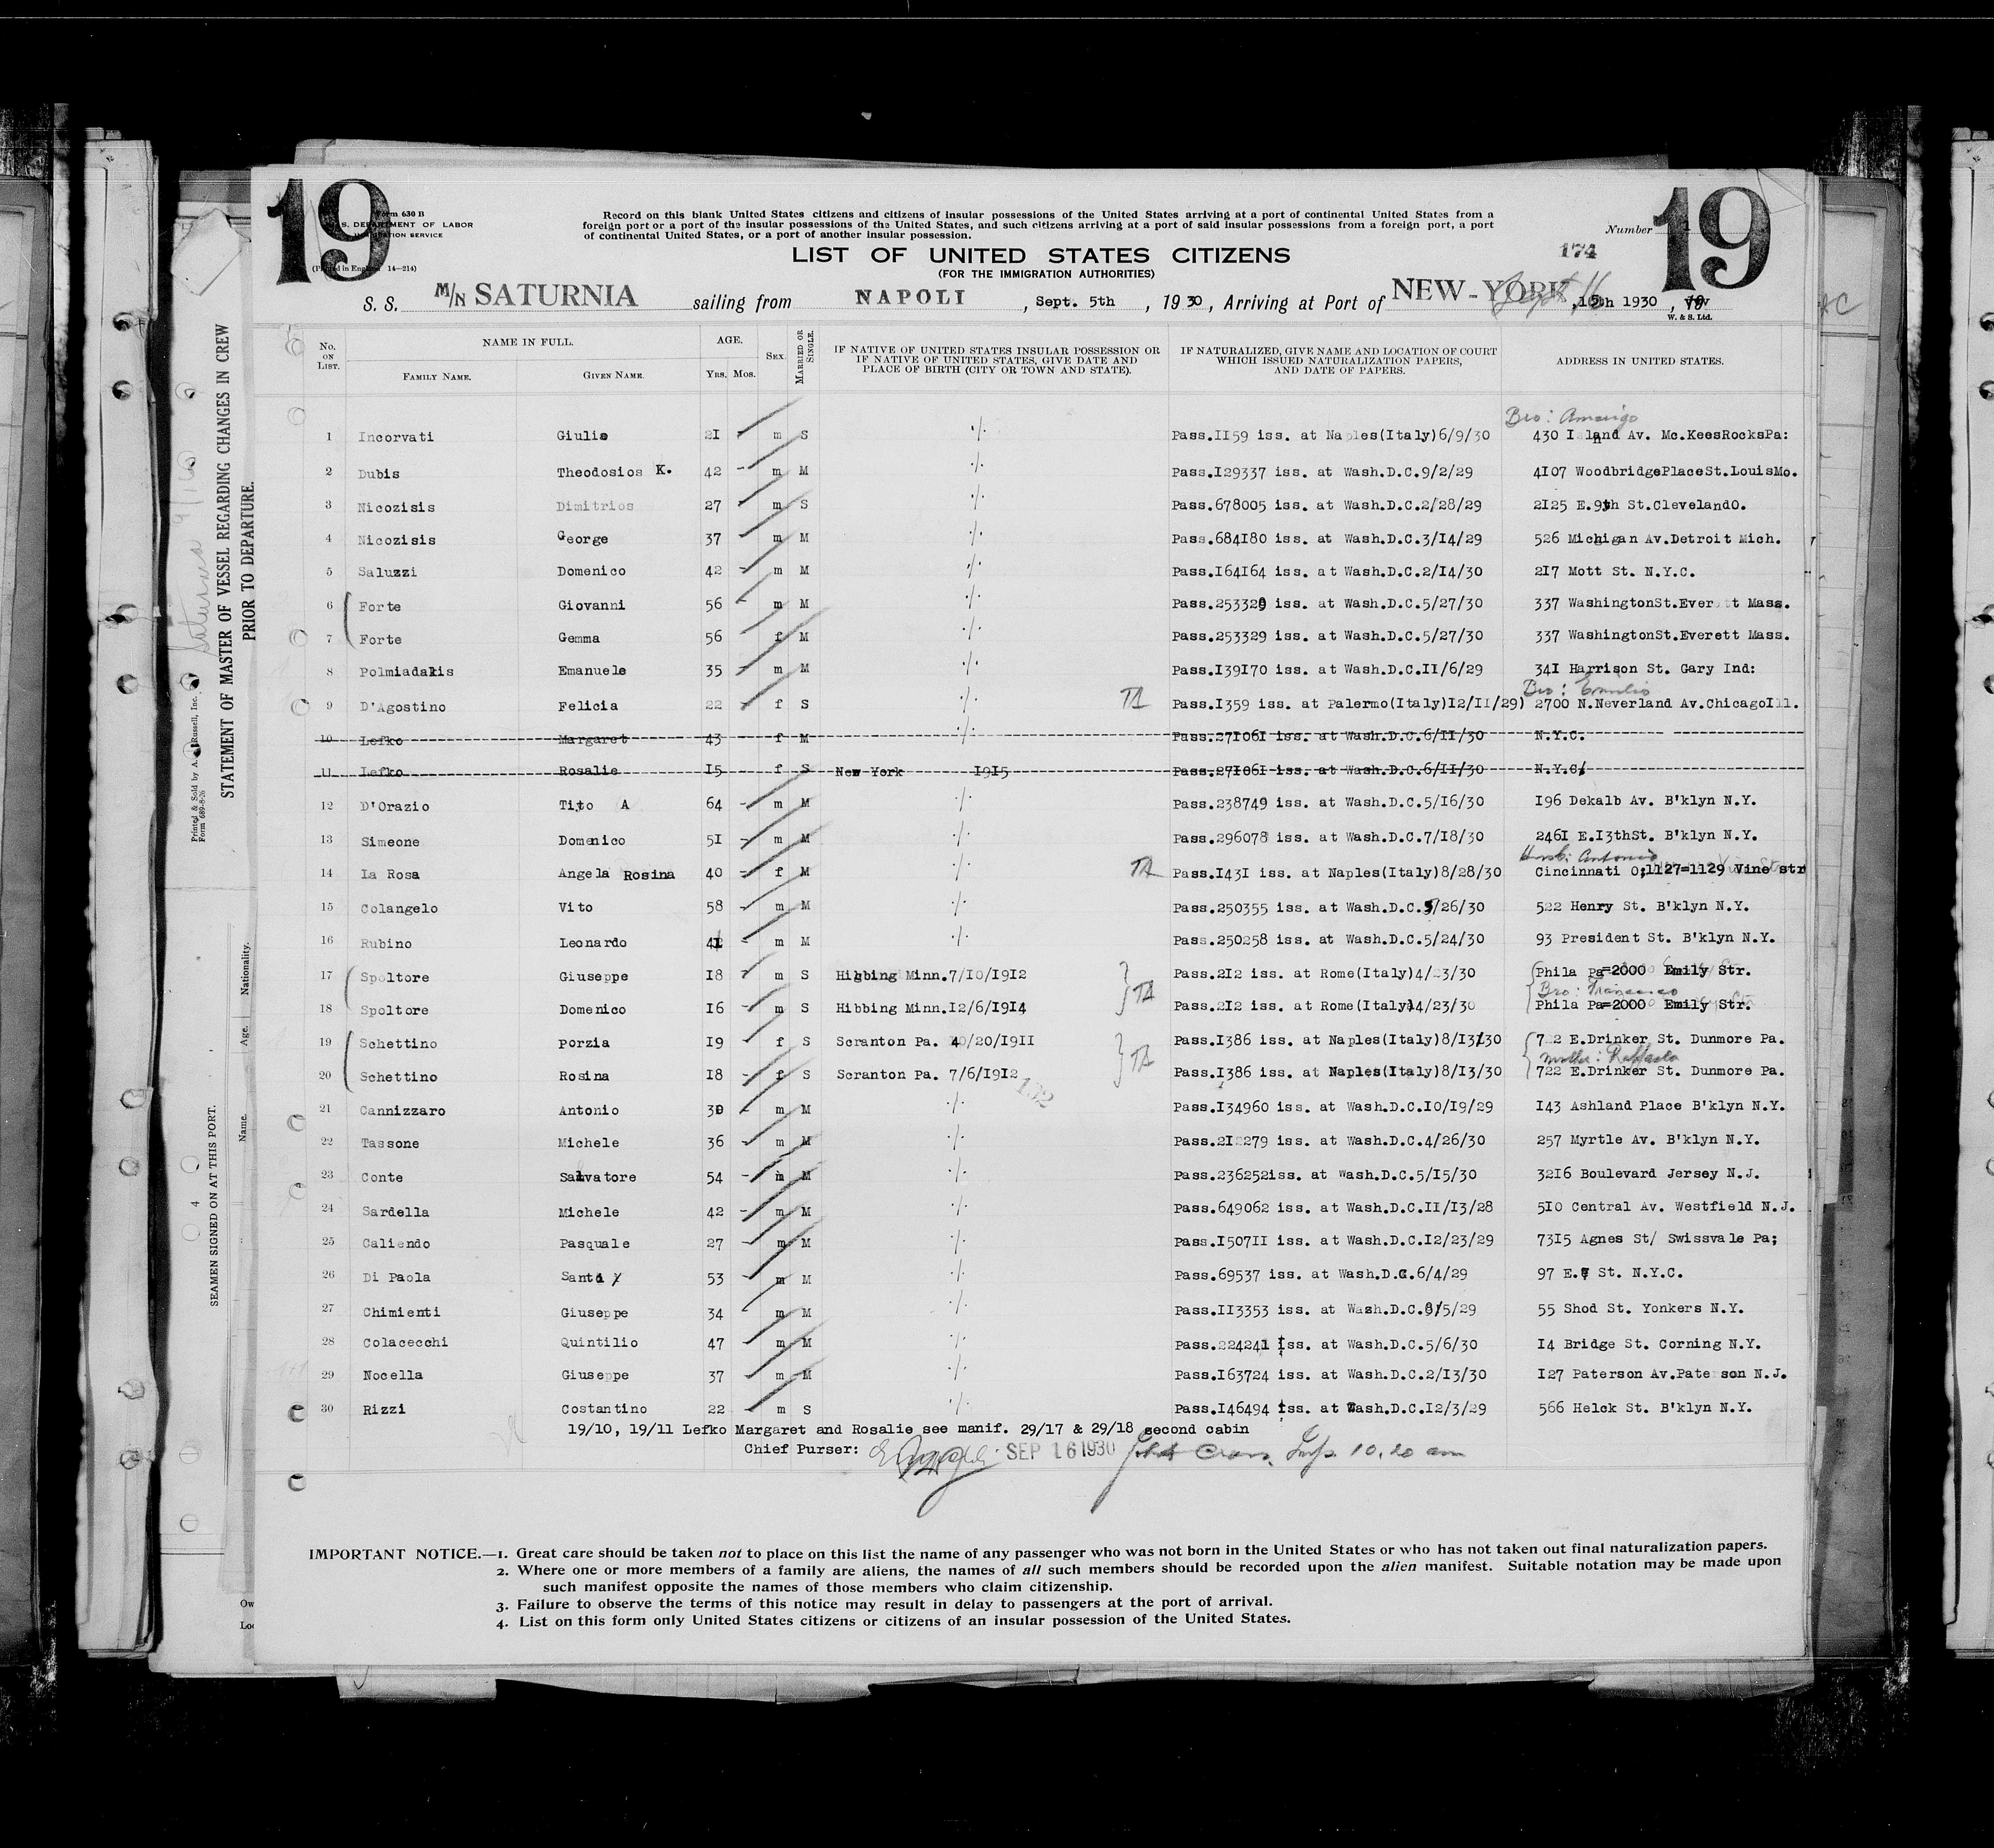 19
19
Form 630 B
S. DEPARTMENT OF LABOR
IMMIGRATION SERVICE
(Printed in England 14—214)
Record on this blank United States citizens and citizens of insular possessions of the United States arriving at a port of continental United States from a
foreign port or a port of the insular possessions of the United States, and such citizens arriving at a port of said insular possessions from a foreign port, a port
of continental United States, or a port of another insular possession.
Number 1
LIST OF UNITED STATES CITIZENS
(FOR THE IMMIGRATION AUTHORITIES)
174
S. S. M/N SATURNIA sailing from NAPOLI, Sept. 5th, 1930, Arriving at Port of NEW-YORK Sept 16, 15th 1930, 19
W. & S. Ltd.
No. ON LIST. NAME IN FULL. AGE. SEX. MARRIED OR SINGLE. IF NATIVE OF UNITED STATES INSULAR POSSESSION OR IF NATIVE OF UNITED STATES, GIVE DATE AND PLACE OF BIRTH (CITY OR TOWN AND STATE). IF NATURALIZED, GIVE NAME AND LOCATION OF COURT WHICH ISSUED NATURALIZATION PAPERS, AND DATE OF PAPERS. ADDRESS IN UNITED STATES.
FAMILY NAME. GIVEN NAME. YRS. MOS.
Bro: Amerigo
1 Incorvati Giulio 21 m S ./. Pass.1159 iss. at Naples(Italy)6/9/30 430 Island Av. Mc.KeesRocksPa:
2 Dubis Theodosios K. 42 m M ./. Pass.129337 iss. at Wash.D.C.9/2/29 4107 WoodbridgePlaceSt.LouisMo.
3 Nicozisis Dimitrios 27 m S ./. Pass.678005 iss. at Wash.D.C.2/28/29 2125 E.9th St.ClevelandO.
4 Nicozisis George 37 m M ./. Pass.684180 iss. at Wash.D.C.3/14/29 526 Michigan Av.Detroit Mich.
5 Saluzzi Domenico 42 m M ./. Pass.164164 iss. at Wash.D.C.2/14/30 217 Mott St. N.Y.C.
6 Forte Giovanni 56 m M ./. Pass.253329 iss. at Wash.D.C.5/27/30 337 WashingtonSt.Everett Mass.
7 Forte Gemma 56 f M ./. Pass.253329 iss. at Wash.D.C.5/27/30 337 WashingtonSt.Everett Mass.
8 Polmiadakis Emanuele 35 m M ./. Pass.139170 iss. at Wash.D.C.11/6/29 341 Harrison St. Gary Ind:
Bro: Emilio
9 D'Agostino Felicia 22 f S ./. TA Pass.1359 iss. at Palermo(Italy)12/11/29) 2700 N.Neverland Av.ChicagoIll.
10 Lefko Margaret 43 f M ./. Pass.271061 iss. at Wash.D.C.6/11/30 N.Y.C.
11 Lefko Rosalie 15 f S New York 1915 Pass.271061 iss. at Wash.D.C.6/11/30 N.Y.C/
12 D'Orazio Tito A 64 m M ./. Pass.238749 iss. at Wash.D.C.5/16/30 196 Dekalb Av. B'klyn N.Y.
13 Simeone Domenico 51 m M ./. Pass.296078 iss. at Wash.D.C.7/18/30 2461 E.13thSt. B'klyn N.Y.
Husb: Antonio
14 La Rosa Angela Rosina 40 f M ./. TA Pass.1431 iss. at Naples(Italy)8/28/30 Cincinnati O;1127=1129 Vine str
15 Colangelo Vito 58 m M ./. Pass.250355 iss. at Wash.D.C.5/26/30 522 Henry St. B'klyn N.Y.
16 Rubino Leonardo 41 m M ./. Pass.250258 iss. at Wash.D.C.5/24/30 93 President St. B'klyn N.Y.
17 Spoltore Giuseppe 18 m S Hibbing Minn.7/10/1912 Pass.212 iss. at Rome(Italy)4/23/30 Phila Pa=2000 Emily Str.
TA Bro: Francesco
18 Spoltore Domenico 16 m S Hibbing Minn.12/6/1914 Pass.212 iss. at Rome(Italy)4/23/30 Phila Pa=2000 Emily Str.
19 Schettino Porzia 19 f S Scranton Pa. 4/20/1911 Pass.1386 iss. at Naples(Italy)8/13/30 722 E.Drinker St. Dunmore Pa.
TA Mother: Raffaela
20 Schettino Rosina 18 f S Scranton Pa. 7/6/1912 Pass.1386 iss. at Naples(Italy)8/13/30 722 E.Drinker St. Dunmore Pa.
132
21 Cannizzaro Antonio 30 m M ./. Pass.134960 iss. at Wash.D.C.10/19/29 143 Ashland Place B'klyn N.Y.
22 Tassone Michele 36 m M ./. Pass.212279 iss. at Wash.D.C.4/26/30 257 Myrtle Av. B'klyn N.Y.
23 Conte Salvatore 54 m M ./. Pass.236252iss. at Wash.D.C.5/15/30 3216 Boulevard Jersey N.J.
24 Sardella Michele 42 m M ./. Pass.649062 iss. at Wash.D.C.11/13/28 510 Central Av. Westfield N.J.
25 Caliendo Pasquale 27 m M ./. Pass.150711 iss. at Wash.D.C.12/23/29 7315 Agnes St/ Swissvale Pa;
26 Di Paola Santi 53 m M ./. Pass.69537 iss. at Wash.D.C.6/4/29 97 E.7 St. N.Y.C.
27 Chimienti Giuseppe 34 m M ./. Pass.113353 iss. at Wash.D.C.8/5/29 55 Shod St. Yonkers N.Y.
28 Colacecchi Quintilio 47 m M ./. Pass.224241 iss. at Wash.D.C.5/6/30 14 Bridge St. Corning N.Y.
29 Nocella Giuseppe 37 m M ./. Pass.163724 iss. at Wash.D.C.2/13/30 127 Paterson Av.Paterson N.J.
30 Rizzi Costantino 22 m S ./. Pass.146494 iss. at Wash.D.C.12/3/29 566 Helck St. B'klyn N.Y.
19/10, 19/11 Lefko Margaret and Rosalie see manif. 29/17 & 29/18 second cabin
Chief Purser: SEP 16 1930 Insp. 10.20 am
IMPORTANT NOTICE.—1. Great care should be taken not to place on this list the name of any passenger who was not born in the United States or who has not taken out final naturalization papers.
2. Where one or more members of a family are aliens, the names of all such members should be recorded upon the alien manifest. Suitable notation may be made upon
such manifest opposite the names of those members who claim citizenship.
3. Failure to observe the terms of this notice may result in delay to passengers at the port of arrival.
4. List on this form only United States citizens or citizens of an insular possession of the United States.
STATEMENT OF MASTER OF VESSEL REGARDING CHANGES IN CREW
PRIOR TO DEPARTURE.
Saturnia 9/16
Form 689-8-26
SEAMEN SIGNED ON AT THIS PORT.
Name. Age. Nationality.